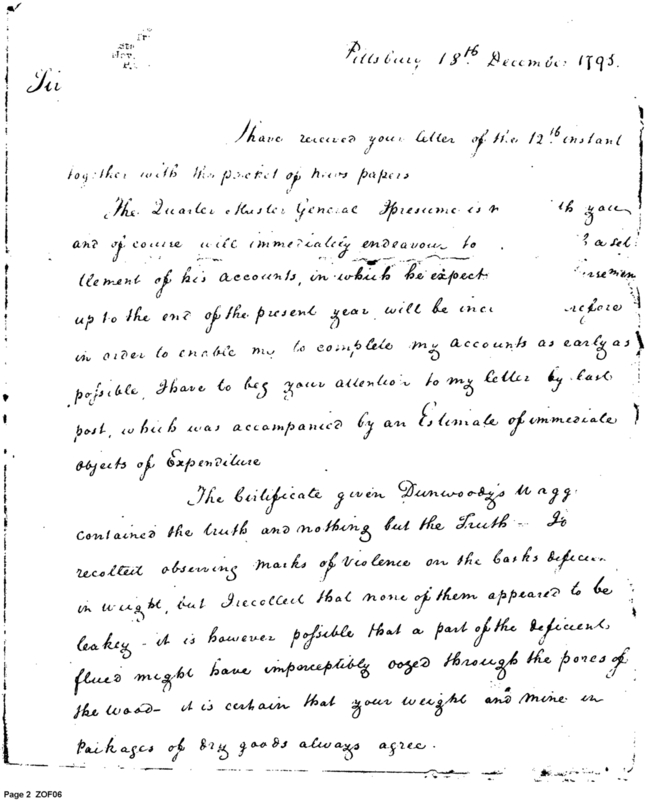 Pittsburg 18th December 1795.
Sir
I have received your letter of the 12th instant
together with the packet of news papers
The Quarter Master General I presume is you
and of course will immediately endeavour to a set
tlement of his accounts, in which he expect
up to the end of the present year, will be
in order to enable me to complete my accounts as early as
possible, I have to beg your attention to my letter by last
post, which was accompanied by an Estimate of immediate
objects of Expenditure
The Certificate given Dunwoody's Wagg
contained the truth and nothing but the Truth –
recollect observing marks of violence on the casks
in weight, but I recollect that none of them appeared to be
leakey – it is however possible that a part of the deficient
flued might have imperceptibly oozed through the pores of
the wood – it is certain that your weight and mine in
Packages of dry goods always agree.
Page 2 ZOF06